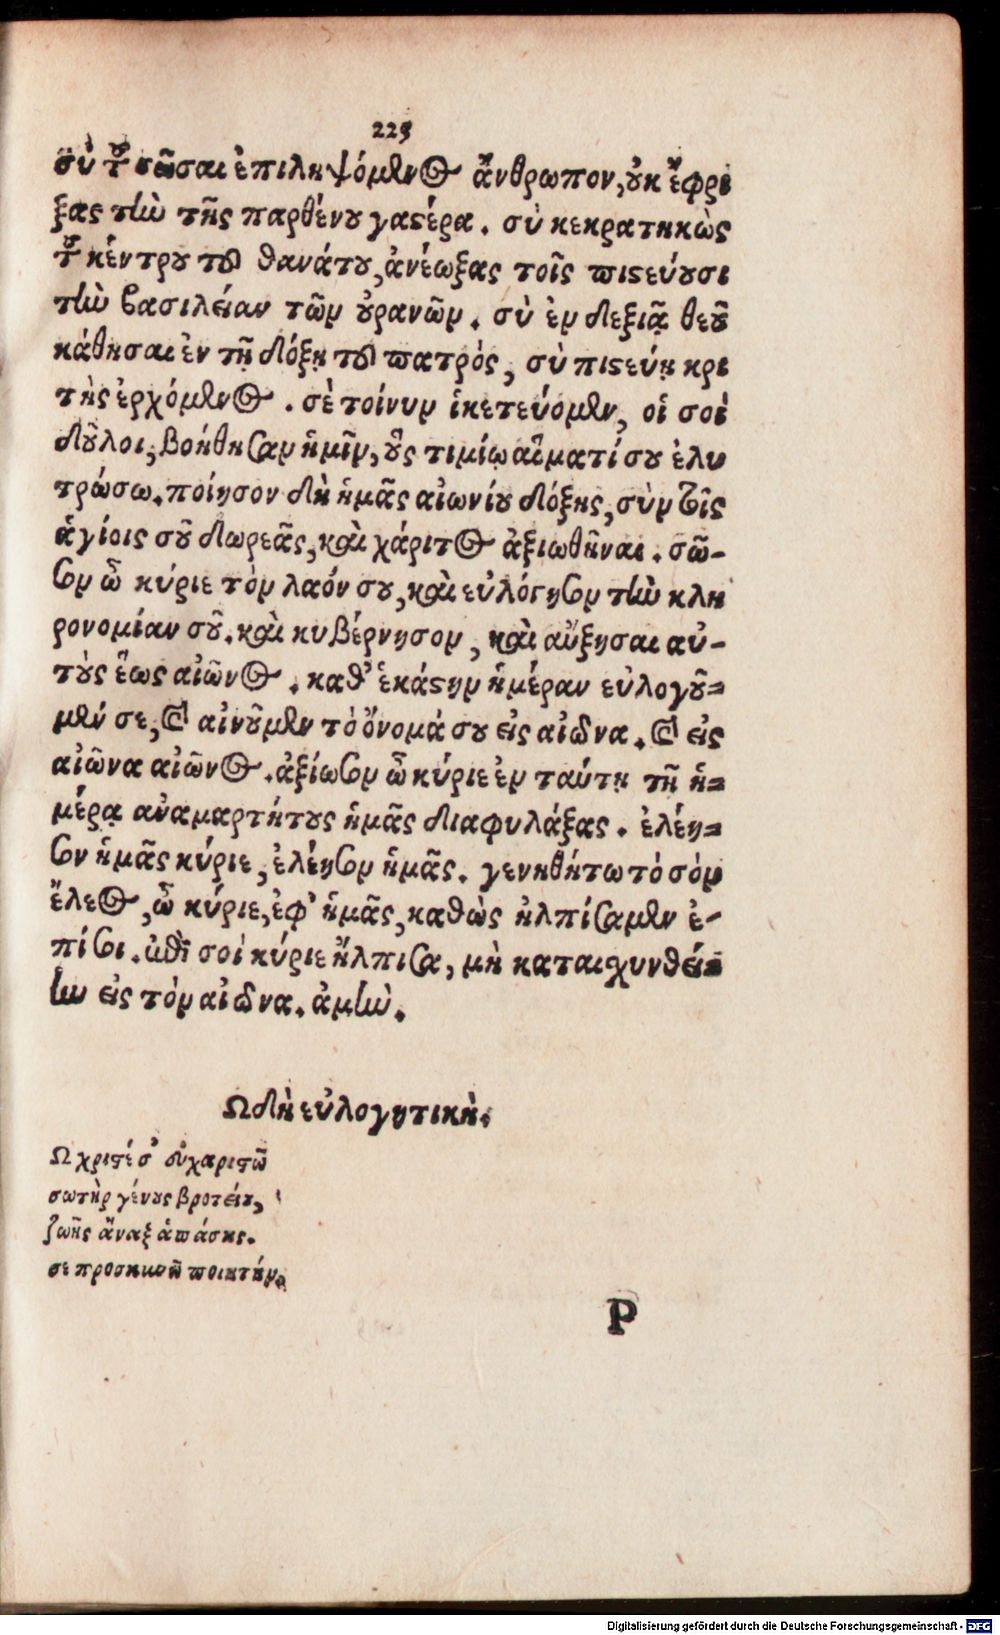 225
σὺ τοῦ σῶσαι ἐπιληψόμενος ἄνθρωπον, οὐκ ἔφρι
ξας τὴν τῆς παρθένου γαστέρα. σὺ κεκρατηκὼς
τοῦ κέντρου τοῦ θανάτου, ἀνέωξας τοῖς πιστεύουσι
τὴν βασιλείαν τῶν οὐρανῶν. σὺ ἐν δεξιᾷ θεοῦ
κάθησαι ἐν τῇ δόξῃ τοῦ πατρὸς, σὺ πιστεύῃ κρι
τὴς ἐρχόμενος. σὲ τοίνυν ἱκετεύομεν, οἱ σοὶ
δοῦλοι, βοήθησαν ἡμῖν, οὓς τιμίῳ αἵματί σου ἐλυ
τρώσω. ποίησον δὴ ἡμᾶς αἰωνίου δόξης, σὺν τοῖς
ἁγίοις σοῦ δωρεᾶς, καὶ χάριτος ἀξιωθῆναι. σῶ-
σον ὦ κύριε τὸν λαόν σου, καὶ εὐλόγησον τὴν κλη
ρονομίαν σοῦ. καὶ κυβέρνησον, καὶ αὔξησαι αὐ-
τοὺς ἕως αἰῶνος. καθ' ἑκάστην ἡμέραν εὐλογοῦ=
μέν σε, καὶ αἰνοῦμεν τὸ ὄνομά σου εἰς αἰῶνα. καὶ εἰς
αἰῶνα αἰῶνος. ἀξίωσον ὦ κύριε ἐν ταύτῃ τῇ ἡ=
μέρᾳ ἀναμαρτήτους ἡμᾶς διαφυλάξας. ἐλέη=
σον ἡμᾶς κύριε, ἐλέησον ἡμᾶς. γενηθήτω τὸ σὸν
ἔλεος, ὦ κύριε, ἐφ' ἡμᾶς, καθὼς ἠλπίσαμεν ἐ-
πί σοι. ἐπὶ σοὶ κύριε ἤλπισα, μὴ καταισχυνθεί=
ην εἰς τὸν αἰῶνα. ἀμὴν.
Ωδὴ εὐλογητικὴ.
Ω χριστέ σ' εὐχαριστῶ
σωτὴρ γένους βροτείου,
ζωῆς ἄναξ ἁπάσης.
σε προσκυνῶ ποιητήν.
P
Digitalisierung gefördert durch die Deutsche Forschungsgemeinschaft - DFG